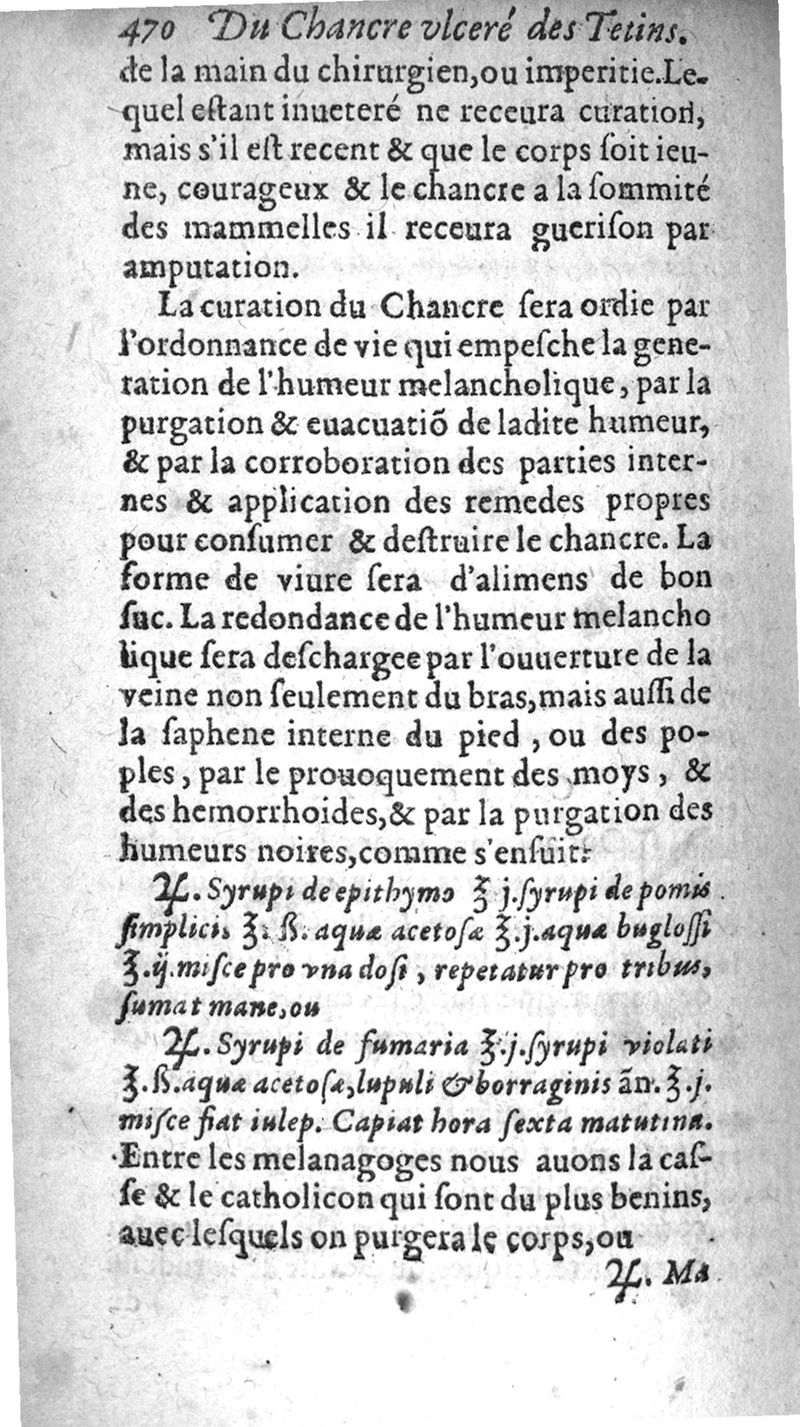 470 Du Chancre vlceré des Tetins.
de la main du chirurgien,ou imperitie.Le-
quel eſtant inueteré ne receura curation,
mais s'il eſt recent & que le corps ſoit ieu-
ne, courageux & le chancre a la ſommité
des mammelles il receura gueriſon par
amputation.
La curation du Chancre ſera ordie par
l'ordonnance de vie qui empeſche la gene-
ration de l'humeur melancholique, par la
purgation & euacuatiõ de ladite humeur,
& par la corroboration des parties inter-
nes & application des remedes propres
pour conſumer & deſtruire le chancre. La
forme de viure ſera d'alimens de bon
ſuc. La redondance de l'humeur melancho
lique ſera deſchargee par l'ouuerture de la
veine non ſeulement du bras,mais auſſi de
la ſaphene interne du pied , ou des po-
ples , par le prouoquement des moys , &
des hemorrhoides,& par la purgation des
humeurs noires,comme s'enſuit:
♃. Syrupi de epithymo ℥ j.ſyrupi de pomis
ſimplicis ℥. ß. aquæ acetoſæ ℥.j.aquæ bugloſſi
℥.ij.miſce pro vna doſi , repetatur pro tribus,
ſumat mane,ou
♃. Syrupi de fumaria ℥.j.ſyrupi violati
℥.ß.aquæ acetoſæ,lupuli & borraginis ãn.℥.j.
miſce fiat iulep. Capiat hora ſexta matutina.
Entre les melanagoges nous auons la caſ-
ſe & le catholicon qui ſont du plus benins,
auec leſquels on purgera le corps,ou
♃. Ma